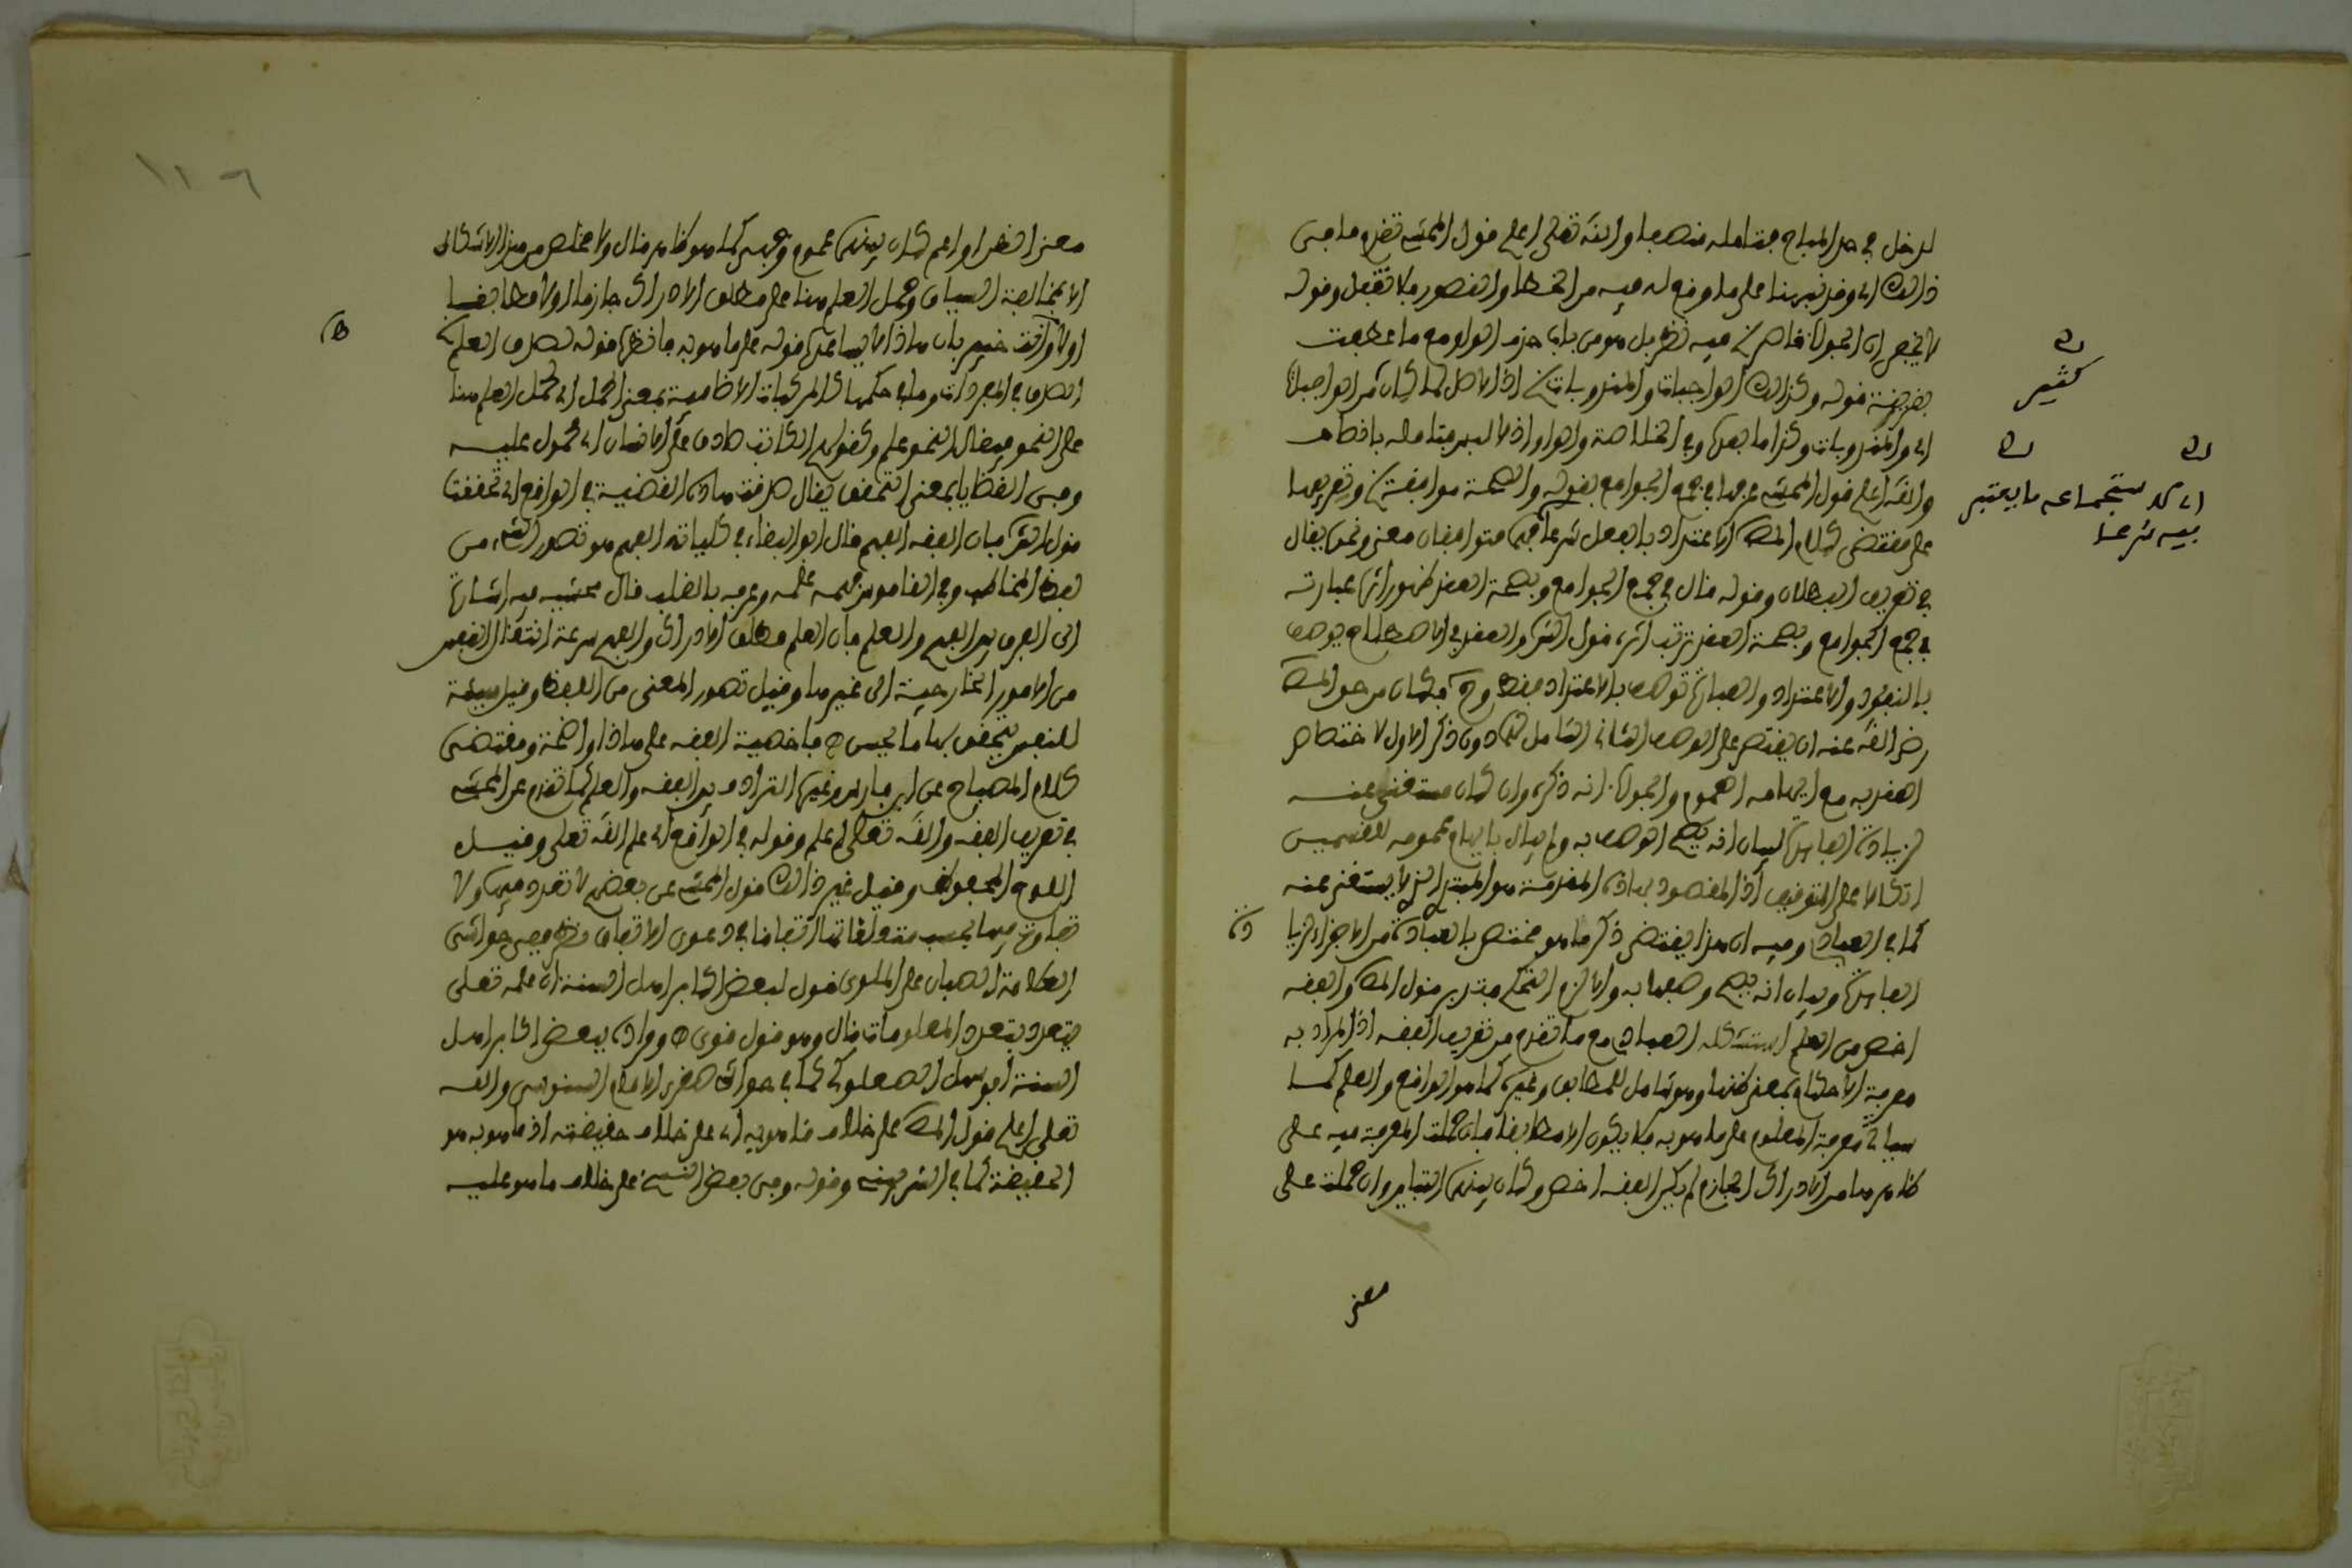 لدخل في حد المباح فتامله منصفا والله تعلى اعلم قول المحشي تقدم ما في
ذالك اي وقد نبهنا على ما وقع له فيه من الخطا والقصور فلا تغفل وقوله
لا يخفى ان الجواب فيه نظر بل هو من باب حذف الواو مع ما عطفت
بقرينة قوله وكذالك الواجبات والمندوبات اذ الاصل لما كان من الواجبات
اي والمندوبات وكذا ما بعده وفي الخلاصة والواو اذ لا لبس فتامله بانصاف
والله اعلم قول المحشي عرفها في جمع الجوامع بقوله والصحة موافقة وتعريفها
على مقتضى كلام المص الاعتداد بالفعل شرعا فهما متوافقان معنى ونحن يقال
في تعريف البطلان وقوله قال في جمع الجوامع وبصحة العقد ظهور اثره عبارته
في جمع الجوامع وبصحة العقد ترتب اثره قول الش والعقد في الاصطلاح يوصف
بالنفوذ والاعتداد والعبادة توصف بالاعتداد فقط وح فكان من حق المص
رضي الله عنه ان يقتصر على الوصف الثاني الشامل لهما دون ذكر الاول لاختصاص
العقد به مع ايهامه العموم والجواب انه ذكره وان كان مستغنى عنه
لزيادة الفائدة لبيان انه يصح الوصف به ولم يبال بايهام عمومه للقسمين
اتكالا على التوقيف اذ المقصود بهاذه المقدمة هو المبتدي الذي لا يستغنى عنه
كما في العبادي وفيه ان هذا يقتضي ذكر ما هو مختص بالعبادة من الاجزاء لزيادة
الفائدة وبيان انه يصح وصفها به والا لزم التحكم فتدبر قول المص والفقه
اخص من العلم استشكله العبادي مع ما تقدم من تعريف الفقه اذ المراد به
معرفة الاحكام بمعنى ظنها وهو شامل للمطابق وغيره كما هو الواقع والعلم كما
سياتي معرفة المعلوم على ما هو به فلا يكون الا مطابقا فان حملت المعرفة فيه على
ظاهرها من الادراك الجازم لم يكن الفقه اخص وكان بينهما التباين وان حملت على
معنى
كثير
اي كد ستجماعه ما يعتبر
فيه شرعا
١٢٦
معنى الظن او اعم كان بينهما عموم وجهي كما هو ظاهر قال ولا مخلص من هذا الاشكال
الا بمخالفة السياق وحمل العلم هنا على مطلق الادراك جازما او لا مطابقا
او لا وانت خبير بان هاذا لا يساعده قوله على ما هو به فانظره قوله تصدق العلم
الصدق في المفردات وما في حكمها كالمركبات الاضافية بمعنى الحمل اي يحمل العلم هنا
على النحو فيقال النحو علم وكقولهم الكاتب صادق على الانسان اي محمول عليه
وفي القضايا بمعنى التحقق يقال صدقت هاذه القضية في الواقع اي تحققت
قول الش فان الفقه الفهم قال ابو البقاء في كلياته الفهم هو تصور الشيء من
لفظ المخاطب وفي القاموس فهمه علمه وعرفه بالقلب قال محشيه فيه اشارة
الى الفرق بين الفهم والعلم فان العلم مطلق الادراك والفهم سرعة انتقال النفس
من الامور الخارجية الى غيرها وقيل تصور المعنى من اللفظ وقيل هيئة
للنفس يتحقق بها ما يحسن ه فاخصية الفقه على هاذا واضحة ومقتضى
كلام المصباح عن ابن فارس وغيره الترادف بين الفقه والعلم كما تقدم عن المحشي
في تعريف الفقه والله تعلى اعلم وقوله في الواقع اي علم الله تعلى وقيل
اللوح المحفوظ وقيل غير ذالك قول المحشي عن بعضهم لا تعدد فيها ولا
تفاوت فيها بحسب متعلقاتها اتفاقا في دعوى الاتفاق نظر ففي حواشي
العلامة الصبان على الملوي قول لبعض اكابر اهل السنة ان علمه تعلى
يتعدد بتعدد المعلومات قال وهو قول قوي ه ومراده ببعض اكابر اهل
السنة ابو سهل الصعلوكي كما في حواشي صغرى الامام السنوسي والله
تعلى اعلم قول المص على خلاف ما هو به اي على خلاف حقيقته اذ ما هو به هو
الحقيقة كما في الشربيني وقوله وفي بعض النسخ على خلاف ما هو عليه